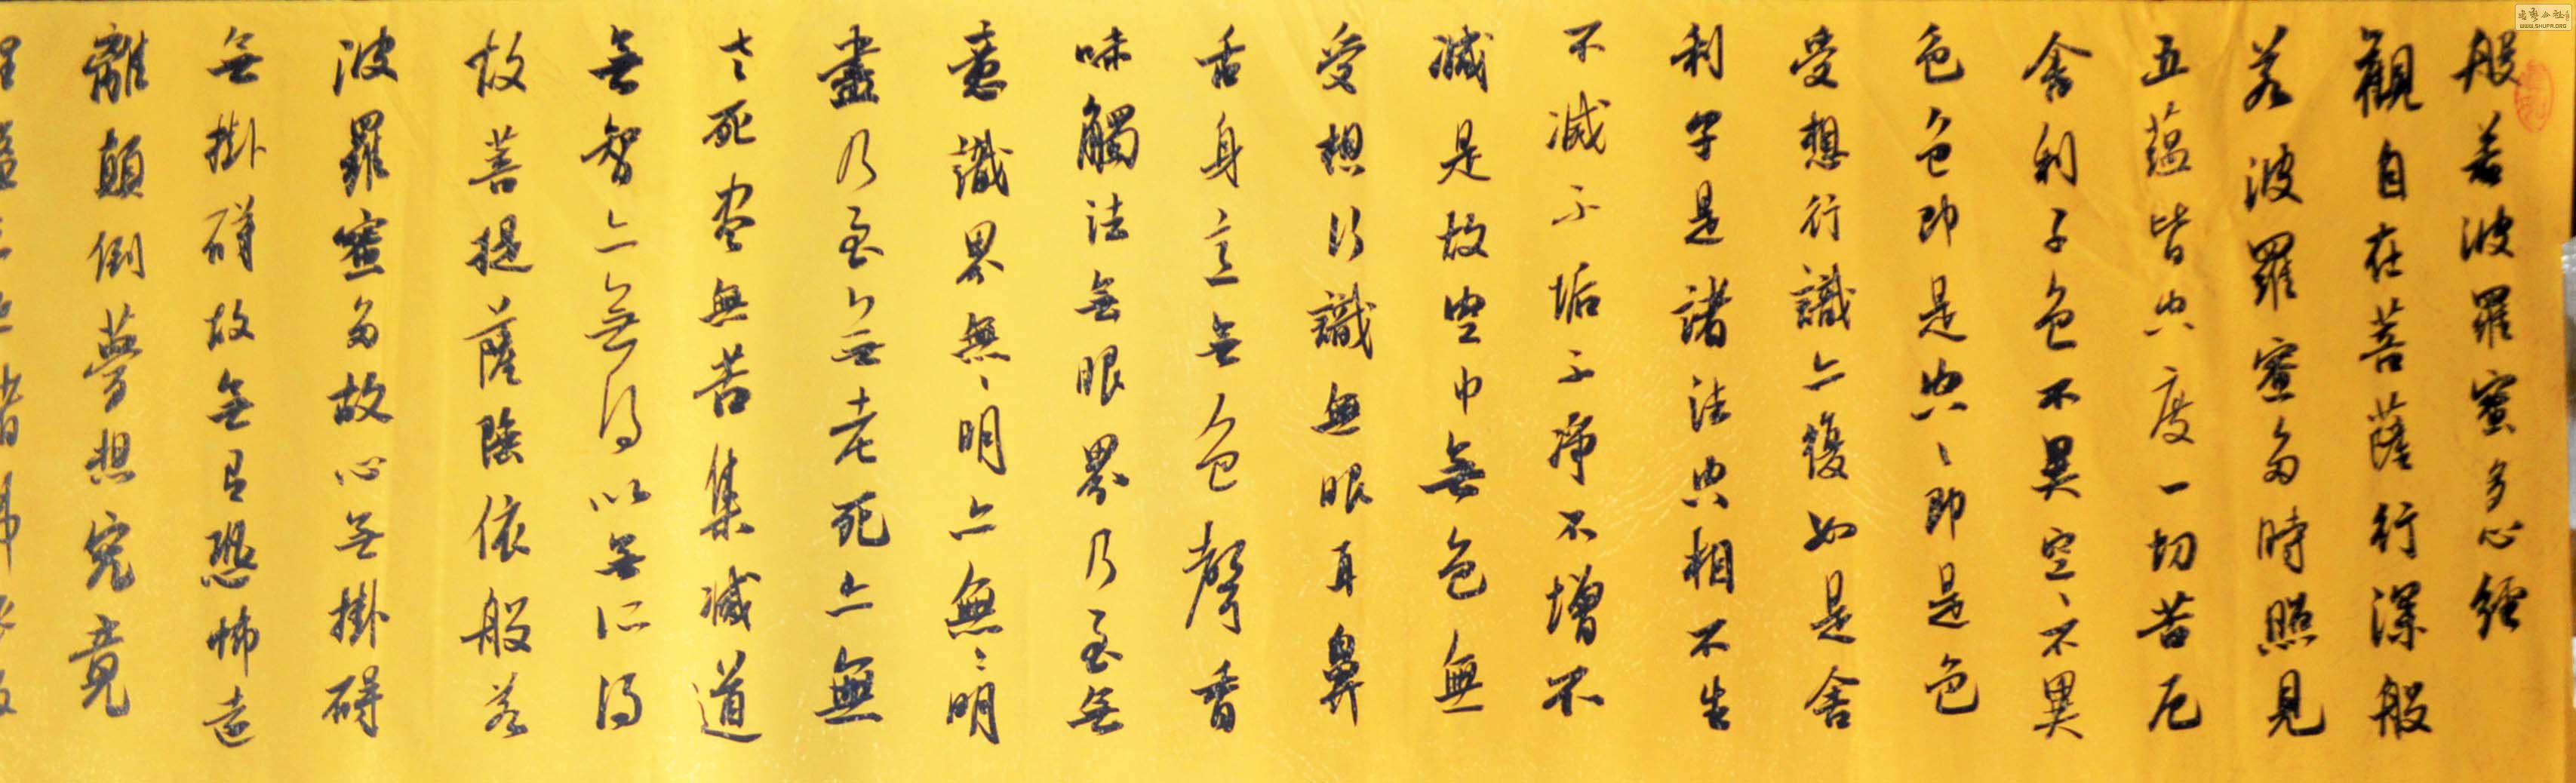 般若波羅蜜多心經
觀自在菩薩行深般
若波羅蜜多時照見
五蘊皆空度一切苦厄
舍利子色不異空、不異
色色即是空、即是色
受想行識亦復如是舍
利子是諸法空相不生
不滅不垢不淨不增不
減是故空中無色無
受想行識無眼耳鼻
舌身意無色聲香
味觸法無眼界乃至無
意識界無、明亦無、明
盡乃至無老死亦無
老死盡無苦集滅道
無智亦無得以無所得
故菩提薩陲依般若
波羅蜜多故心無掛碍
無掛碍故無有恐怖遠
離顛倒夢想究竟
WWW.SHUFA.ORG